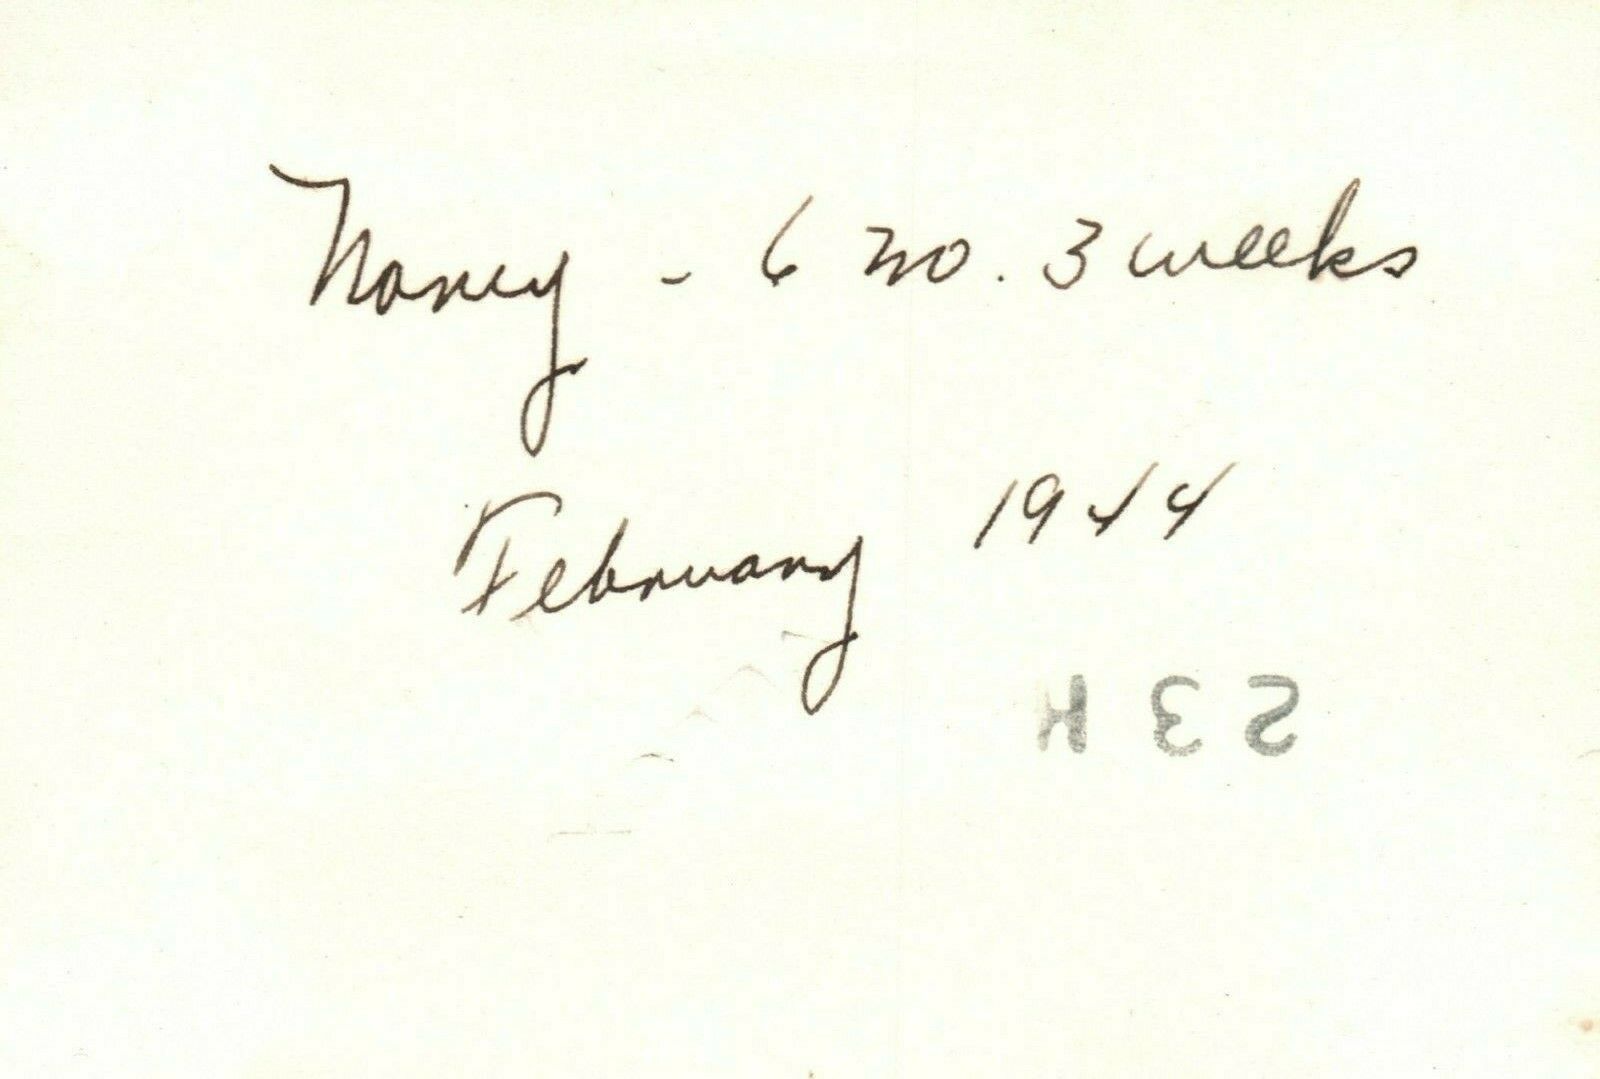 Nancy - 6 mo. 3 weeks
February 1944
23H